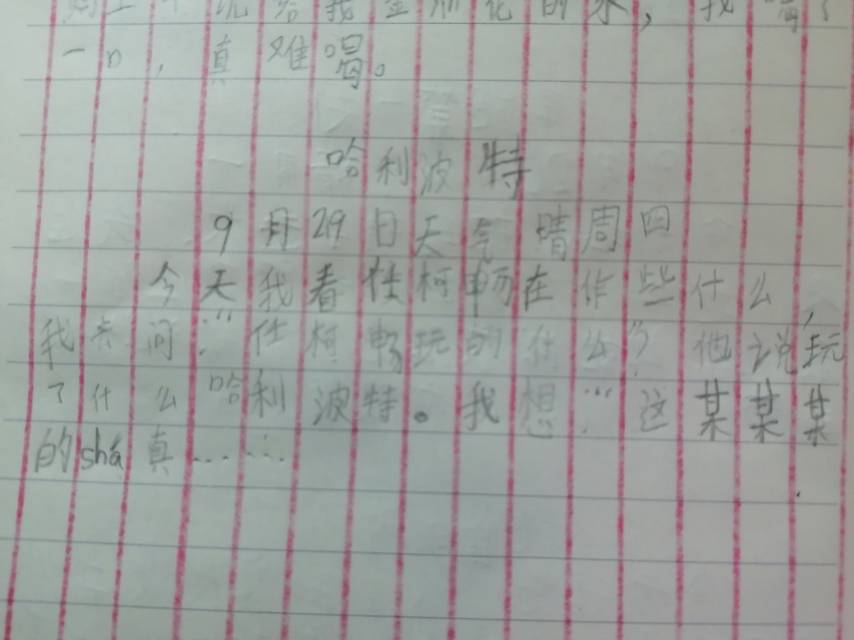 给我 的水，我喝了
一口，真难喝。
哈利波特
9月29日天气晴周四
今天我看任柯畅在作些什么，
我去问：“任柯畅玩的什么？他说玩
了什么哈利波特。我想：“这某某某
的shá真……